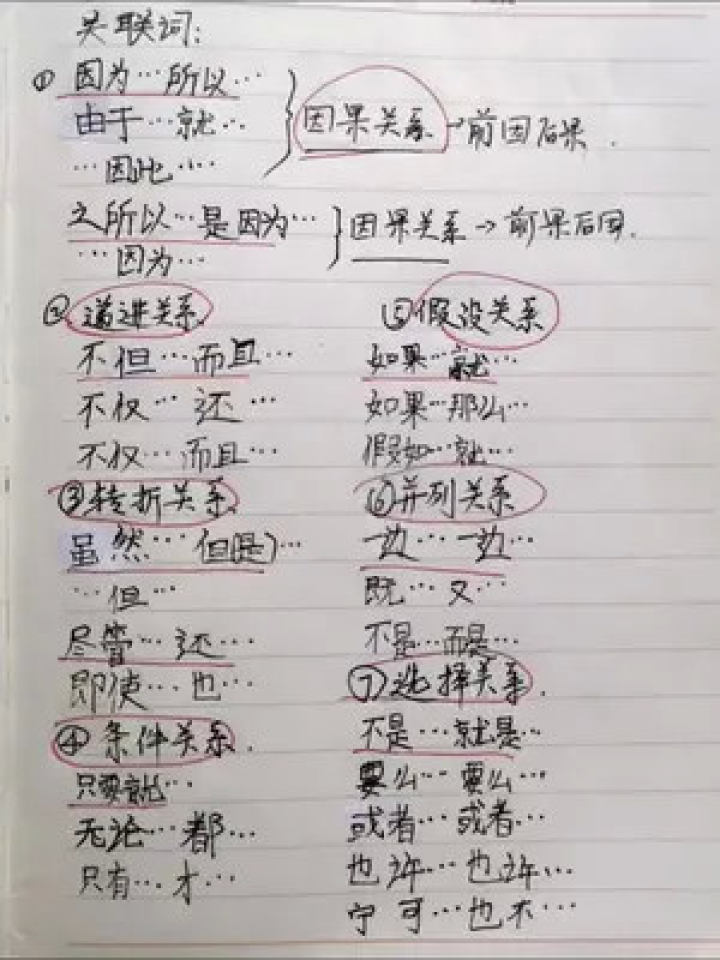 关联词:
① 因为…所以…
由于…就…
…因此…
因果关系→前因后果.
之所以…是因为…
…因为…
因果关系→前果后因.
② 递进关系
不但…而且…
不仅…还…
不仅…而且…
③转折关系
虽然…但(是)…
…但…
尽管…还…
即使…也…
④条件关系.
只要就…
无论…都…
只有…才…
⑤假设关系
如果…就…
如果…那么…
假如…就…
⑥并列关系
一边…一边…
既…又…
不是…而是…
⑦选择关系.
不是…就是…
要么…要么…
或者…或者…
也许…也许…
宁可…也不…